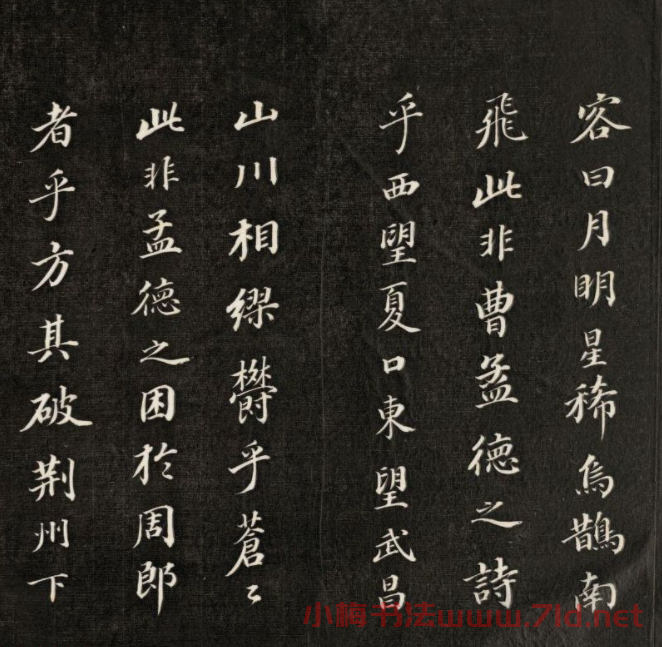 容曰月明星稀烏鵲南
飛此非曹孟德之詩
乎西望夏口東望武昌
山川相繆欝乎蒼〻
此非孟德之困於周郎
者乎方其破荆州下
小楷书法www.7ld.net